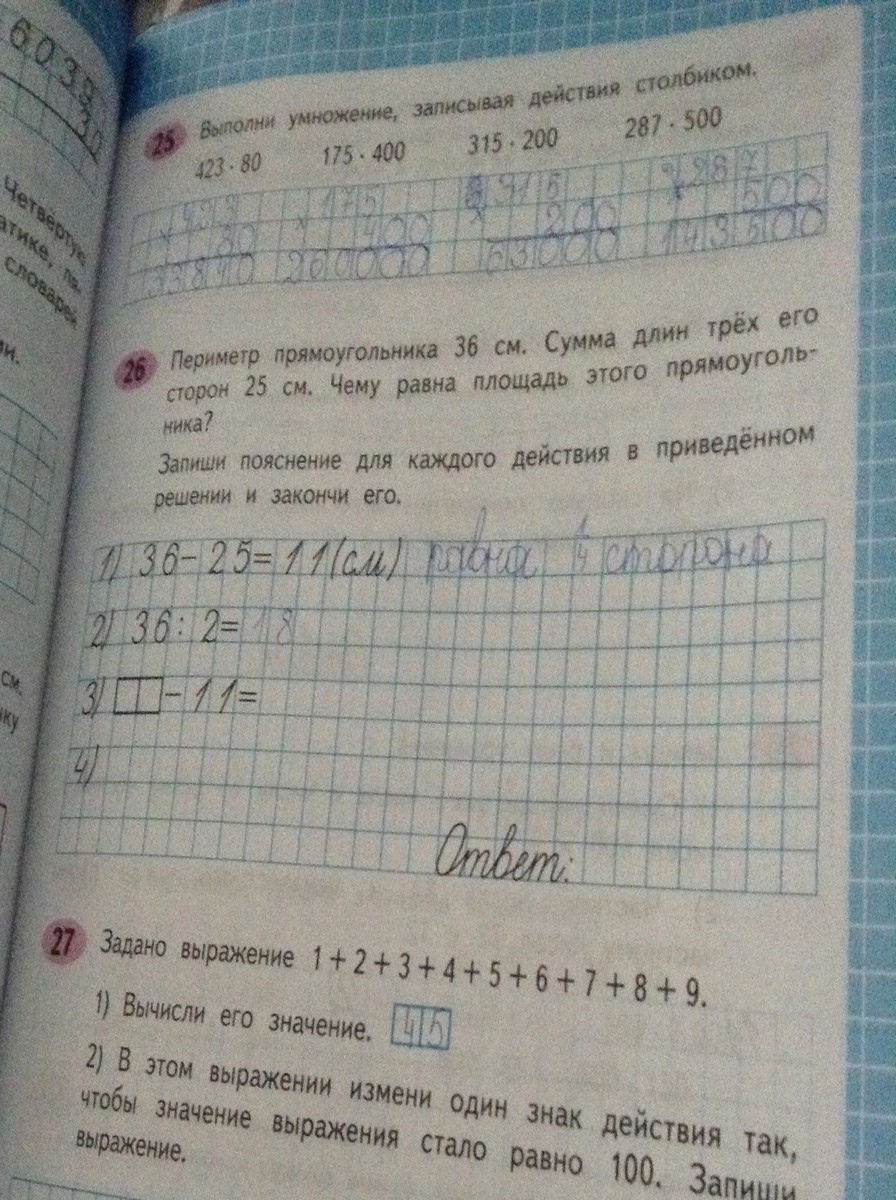 6039
30
Четвёртую
атике, ля-
словарей
ри.
см.
ику
25 Выполни умножение, записывая действия столбиком.
423 · 80 175 · 400 315 · 200 287 · 500
× 423 × 175 × 315 × 287
80 400 200 500
33840 63000 143500
26 Периметр прямоугольника 36 см. Сумма длин трёх его
сторон 25 см. Чему равна площадь этого прямоуголь-
ника?
Запиши пояснение для каждого действия в приведённом
решении и закончи его.
1) 36 - 25 = 11 (см) равна 1/4 сторона
2) 36 : 2 = 18
3) - 11 =
4)
Ответ:
27 Задано выражение 1 + 2 + 3 + 4 + 5 + 6 + 7 + 8 + 9.
1) Вычисли его значение. 45
2) В этом выражении измени один знак действия так,
чтобы значение выражения стало равно 100. Запиши
выражение.